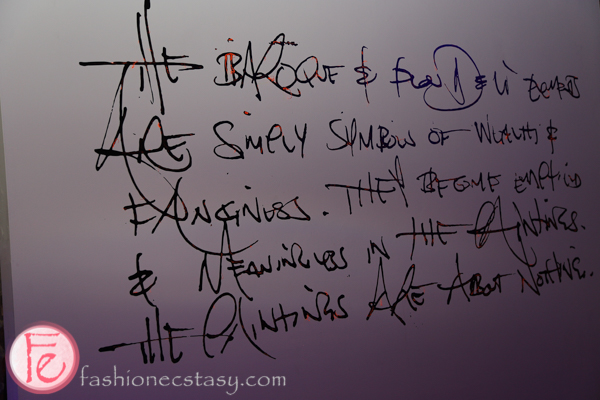 THE BAROQUE &
ARE SIMPLY SYMBOLS OF WEALTH &
THEY BECOME EMPTIED
& MEANINGLESS IN THE PAINTINGS.
THE PAINTINGS ARE ABOUT NOTHING.
Fe fashionecstasy.com